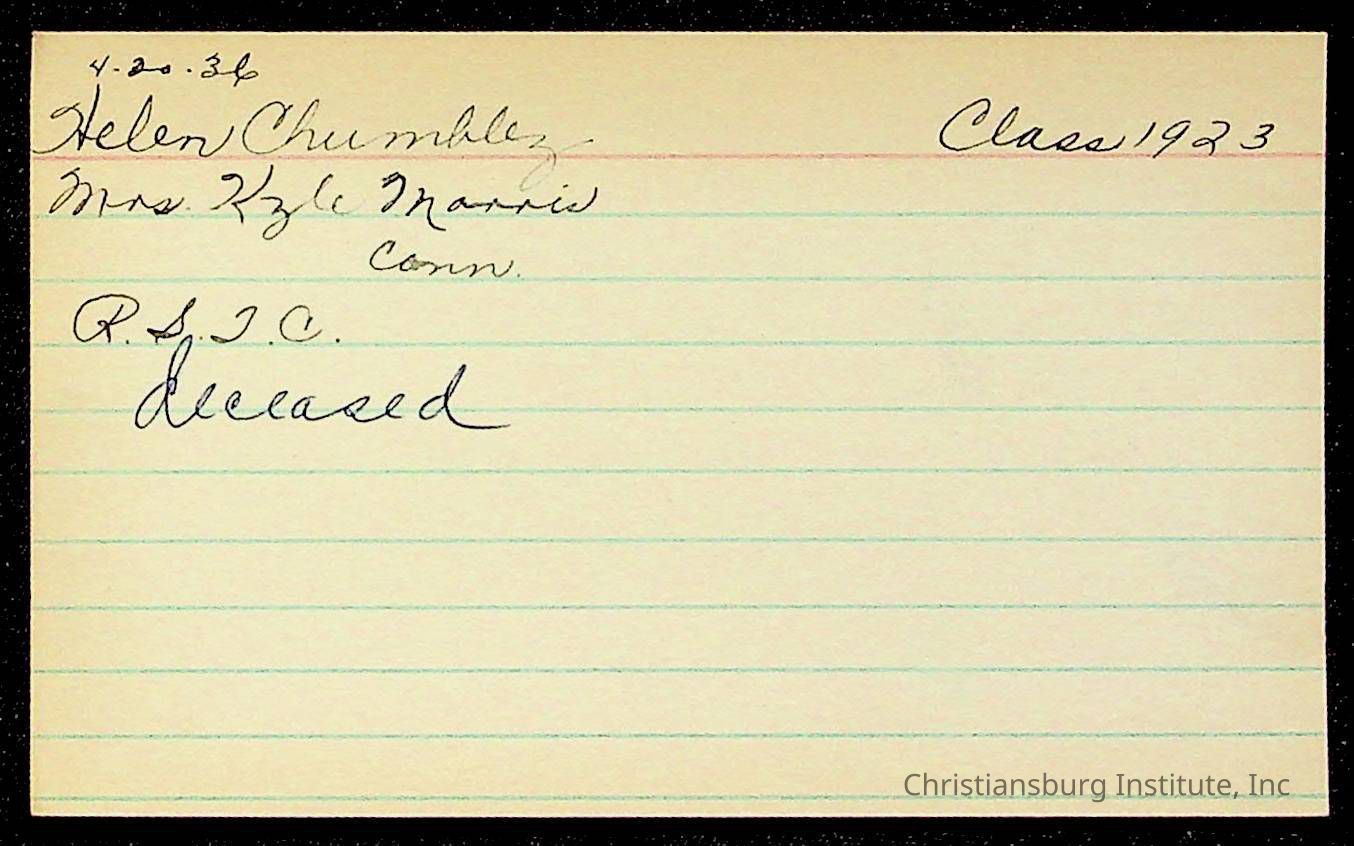 4-20-36
Helen Chumbley Class 1923
Mrs. Kyle Morris
Conn.
R.S.T.C.
deceased
Christiansburg Institute, Inc